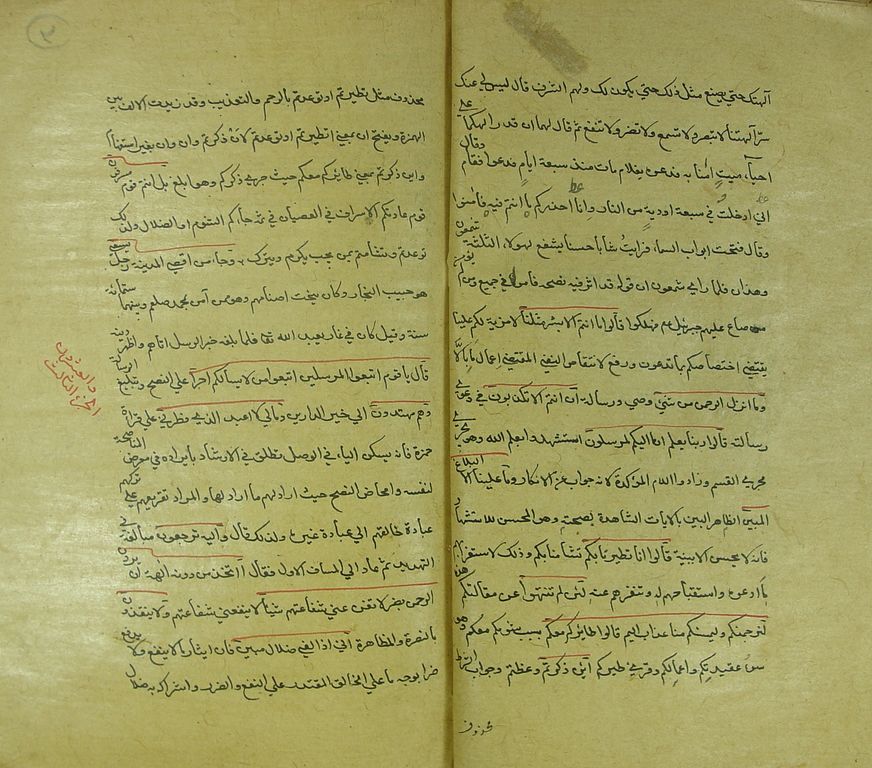 آلهتك حتي يصنع مثل ذلك حتي يكون لك ولهم الشرف قال ليس لي عنك
سرّ آلهتنا لا تبصر ولا تسمع ولا تضر ولا تنفع ثم قال لهما ان قدر الهكما علي
احياء ميت امنا به فدعوا بغلام مات منذ سبعة ايام فدعوا فقام وقال
اني ادخلت في سبعة اودية من النار وانا احذركم ما انتم فيه فامنوا
وقال فتحت ابواب السماء فرايت شابا حسنا يشفع لهولاء الثلثة شمعون
وهذان فلما راي شمعون ان قوله قد اثر فيه نصحه فامن في جمع
صاح عليهم جبرئيل عم فهلكوا قالوا ما انتم الا بشر مثلنا لا مزية لكم علينا
يقتضي اختصاصكم بما تدعون ورفع لانتقاض النفي المقتضي اعمال ما بالّا
وما انزل الرحمن من شئ وحي ورسالة ان انتم الا تكذبون في دعوي
رسالته قالوا ربنا يعلم انا اليكم لمرسلون استشهدوا بعلم الله وهو يجري
مجري القسم وزادوا اللام المؤكدة لانه جواب عن الانكار وما علينا الا البلاغ
المبين الظاهر البين بالايات الشاهدة بصحته وهو المحسن للاستشهاد
فانه لا يحسن الا ببينة قالوا انا تطيرنا بكم تشأمنا بكم وذلك لاستغرابهم
ما ادعوه واستقباحهم له وتنفرهم عنه لئن لم تنتهوا عن مقالتكم هذه
لنرجمنكم وليمسنكم منا عذاب اليم قالوا طائركم معكم سبب شؤمكم معكم وهو
سوء عقيدتكم واعمالكم وقرئ طيركم ائن ذكرتم وعظتم وجواب الشرط
محذوف
محذوف مثل تطيرتم او توعدتم بالرجم والتعذيب وقد زيدت الالف بين
الهمزة وبفتح ان بمعني اتطيرتم او توعدتم لان ذكرتم وان وان بغير استفهام
واين ذكرتم بمعني طائركم معكم حيث جري ذكركم وهو ابلغ بل انتم قوم مسرفون
قوم عادتكم الاسراف في العصيان فمن ثم جاءكم الشؤم او الضلال ولذلك
توعدتم وتشأمتم بمن يجب يكرم ويتبرك به وجاء من اقصي المدينة رجل يسعي
هو حبيب النجار وكان ينحت اصنامهم وهو ممن آمن بمحمد صلعم وبينهما ستمائة
سنة وقيل كان في غار يعبد الله تعا فلما بلغه خبر الرسل اتاهم واظهر دينه
قال يا قوم اتبعوا المرسلين اتبعوا من لا يسالكم اجرا علي النصح وتبليغ الرسالة
وهم مهتدون الي خير الدارين ومالي لا اعبد الذي فطرني علي قراءة
حمزة فانه يسكن الياء في الوصل تلطف في الارشاد بايراده في معرض المناصحة
لنفسه وامحاض النصح حيث اراد لهم ما اراد لها والمراد تقريعهم علي تركهم
عبادة خالقهم الي عبادة غيره ولذلك قال واليه ترجعون مبالغة في
التهديد ثم عاد الي المساق الاول فقال أاتخذ من دونه الهة ان يردن
الرحمن بضر لا تغن عني شفاعتهم شيأ لا ينفعني شفاعتهم ولا ينقذون
بالنصرة والمظاهرة اني اذا لفي ضلال مبين فان ايثار ما لا ينفع ولا يدفع
ضرا بوجه ما علي الخالق المقتدر علي النفع والضر واشراكه به ضلال
٣